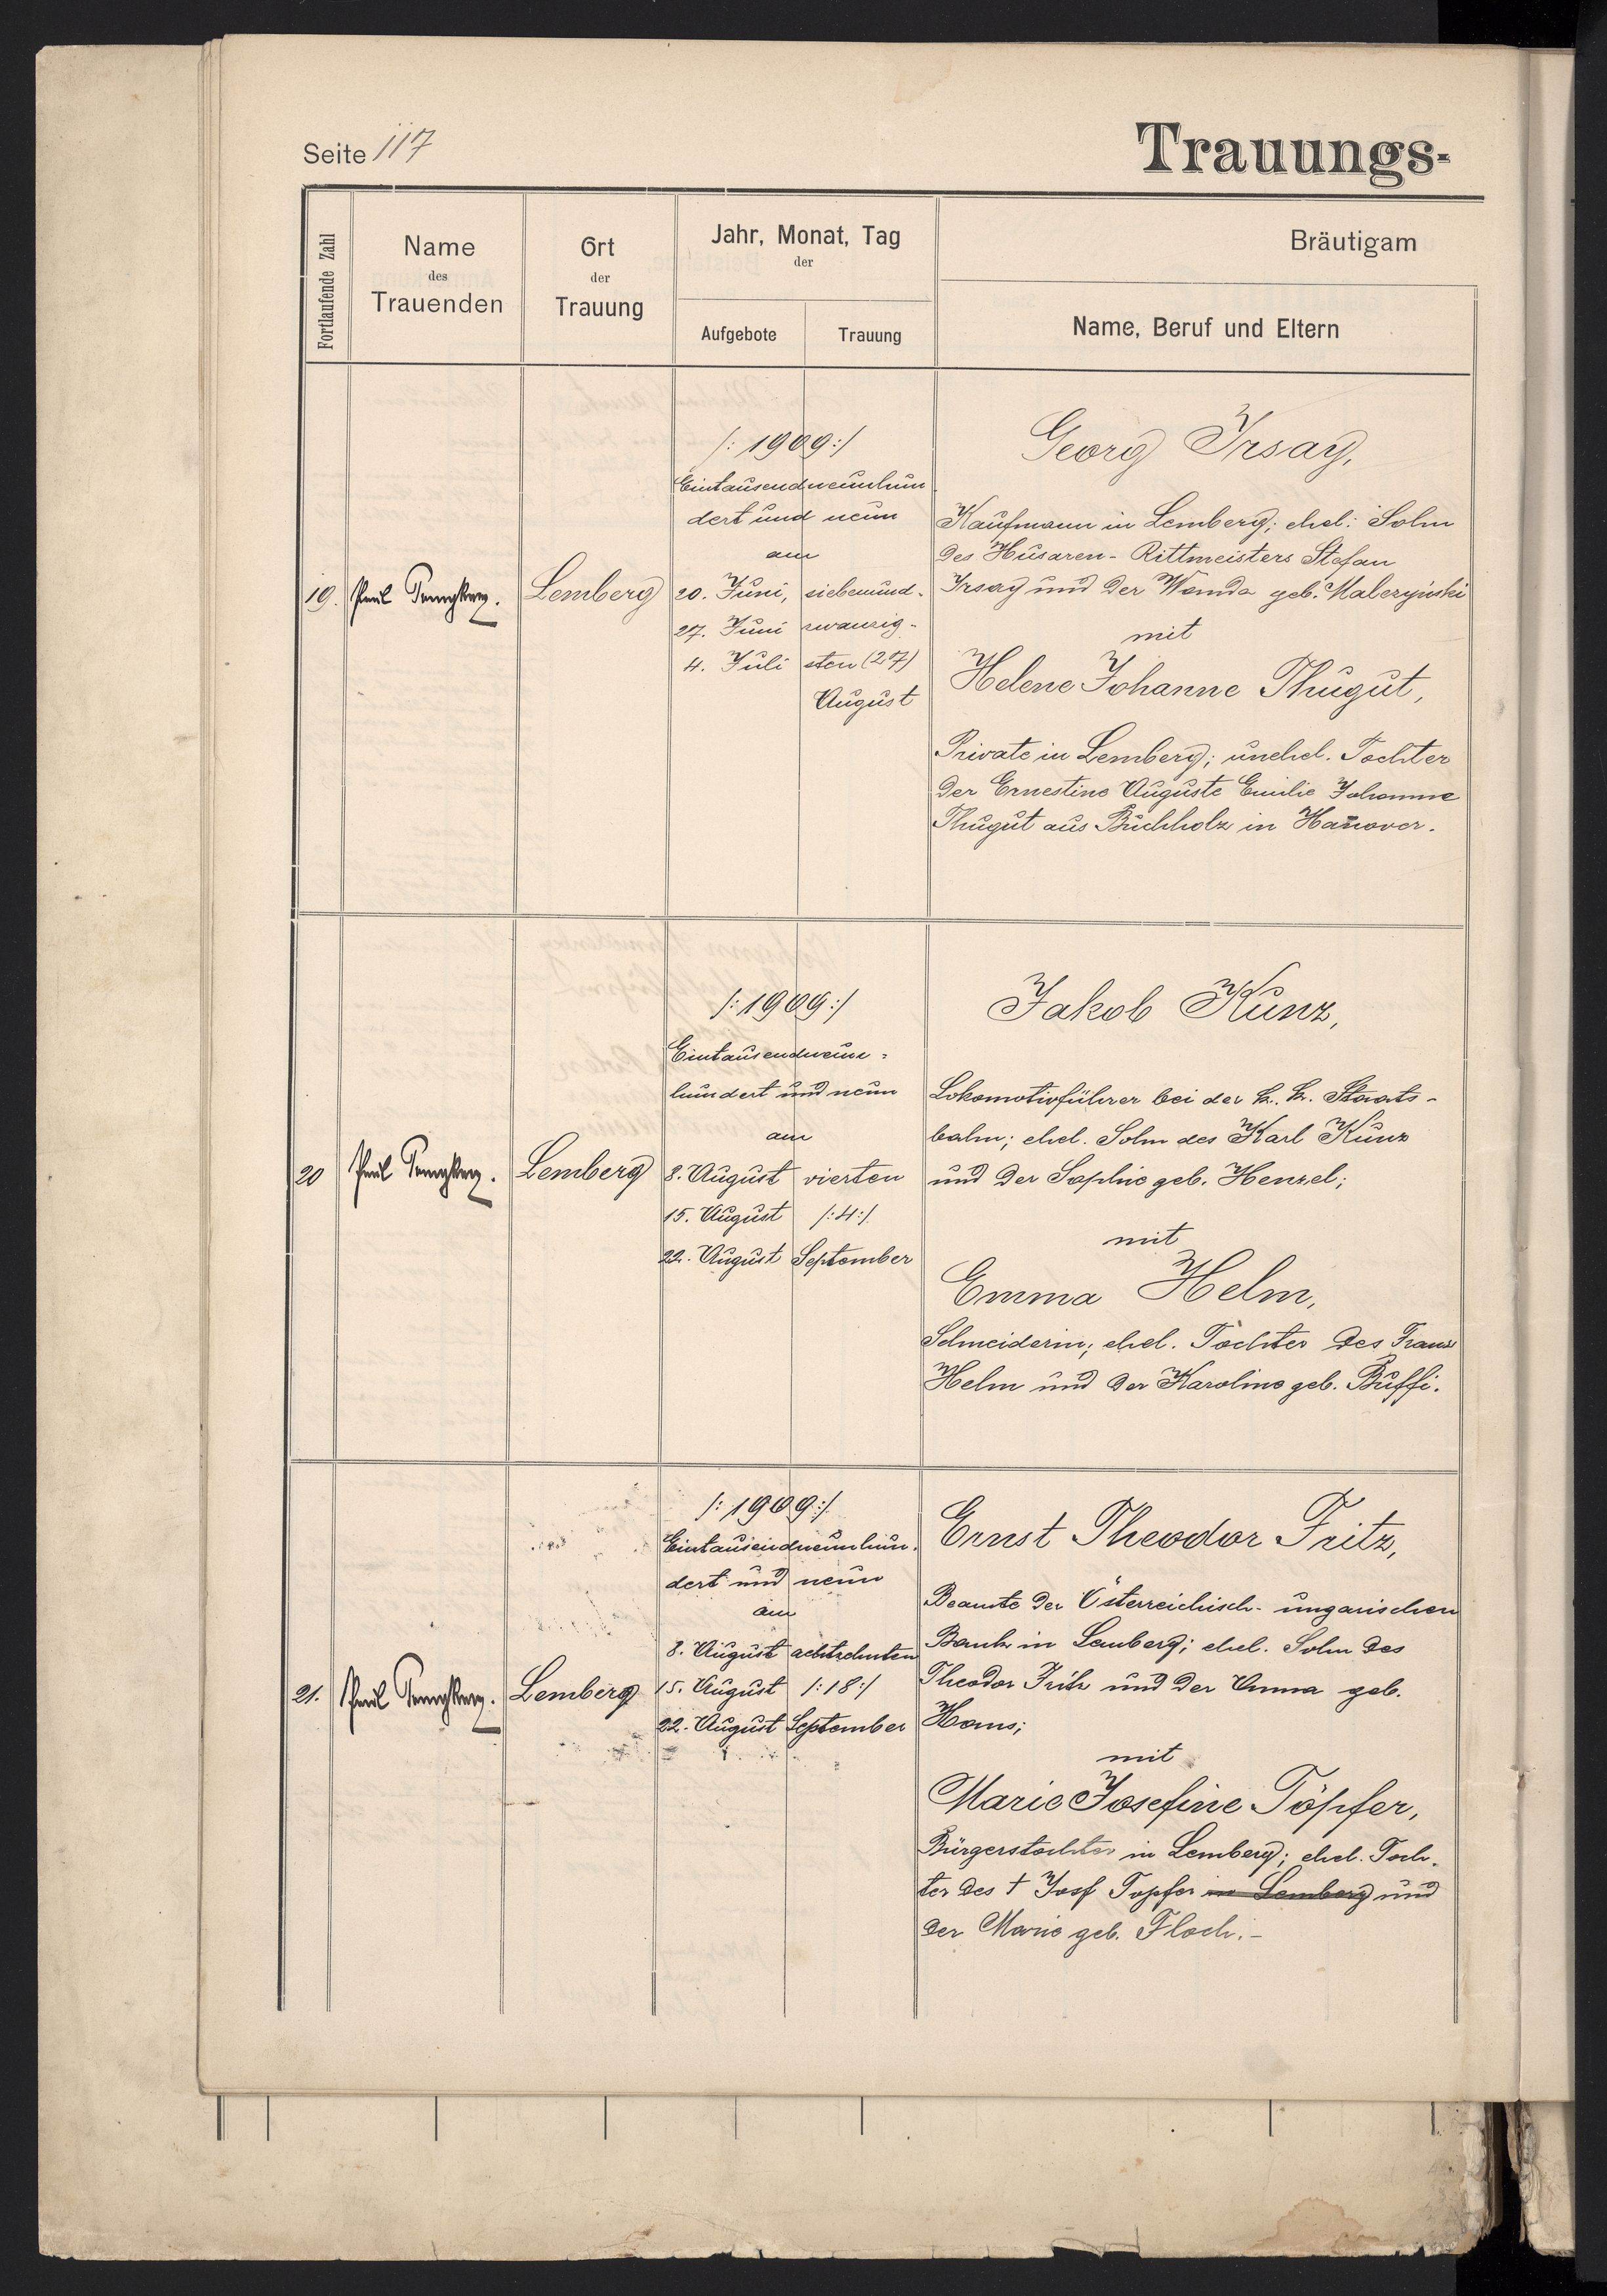 Seite 117
Trauungs-
Fortlaufende Zahl
Name
des
Trauenden
Ort
der
Trauung
Jahr, Monat, Tag
der
Aufgebote
Trauung
Bräutigam
Name, Beruf und Eltern
19.
Paul
Lemberg
/: 1909 :/
Eintausendneunhun
dert und neun
am
20. Juni,
27. Juni
4. Juli
siebenund-
zwanzig-
sten (27)
August
Georg Irsay,
Kaufmann in Lemberg; ehel: Sohn
des Husaren-Rittmeisters Stefan
Irsay und der Wanda geb. Maleczyński
mit
Helene Johanne Thugut,
Private in Lemberg; unehel. Tochter
der Ernestine Auguste Emilie Johanne
Thugut aus Buchholz in Hanover.
20
Paul
Lemberg
/: 1909 :/
Eintausendneun-
hundert und neun
am
8. August
15. August
22. August
vierten
/: 4 :/
September
Jakob Kunz,
Lokomotivführer bei der k. k. Staats-
bahn; ehel. Sohn des Karl Kunz
und der Sophie geb. Henzel;
mit
Emma Helm,
Schneiderin; ehel. Tochter des Franz
Helm und der Karoline geb. Buffi.
21.
Paul
Lemberg
/: 1909 :/
Eintausendneunhun-
dert und neun
am
8. August
15. August
22. August
achtzehnten
/: 18 :/
September
Ernst Theodor Fritz,
Beamte der Österreichisch-ungarischen
Bank in Lemberg; ehel. Sohn des
Theodor Fritz und der Emma geb.
Hans;
mit
Marie Josefine Töpfer,
Bürgerstochter in Lemberg; ehel. Toch-
ter des † Josf Topfer in Lemberg und
der Marie geb. Floch.-